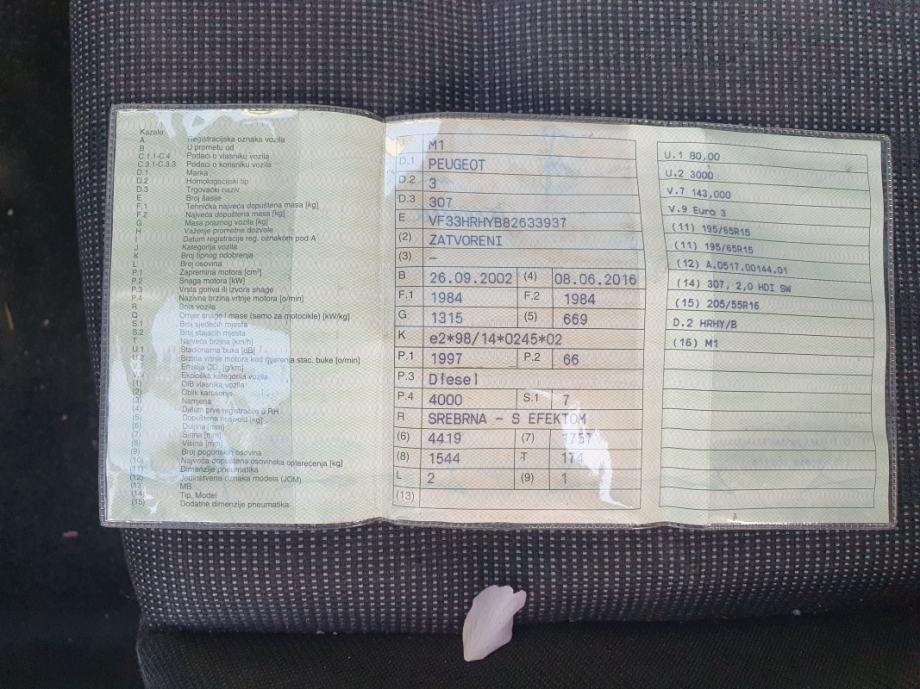 Kazalo
A Registracijska oznaka vozila
B U prometu od
C.1.1-C.4 Podaci o vlasniku vozila
C.3.1-C.3.3 Podaci o korisniku vozila
D.1 Marka
D.2 Homologacijski tip
D.3 Trgovački naziv
E Broj šasije
F.1 Tehnička najveća dopuštena masa [kg]
F.2 Najveća dopuštena masa [kg]
G Masa praznog vozila [kg]
H Važenje prometne dozvole
I Datum registracije reg. oznakom pod A
J Kategorija vozila
K Broj tipnog odobrenja
L Broj osovina
P.1 Zapremina motora [cm³]
P.2 Snaga motora [kW]
P.3 Vrsta goriva ili izvora snage
P.4 Nazivna brzina vrtnje motora [o/min]
R Boja vozila
Q Omjer snage i mase (samo za motocikle) [kW/kg]
S.1 Broj sjedećih mjesta
S.2 Broj stajaćih mjesta
T Najveća brzina [km/h]
U.1 Stacionarna buka [dB]
U.2 Brzina vrtnje motora kod mjerenja stac. buke [o/min]
V.7 Emisija CO₂ [g/km]
V.9 Ekološka kategorija vozila
(1) OIB vlasnika vozila
(2) Oblik karoserije
(3) Namjena
(4) Datum prve registracije u RH
(5) Dopuštena nosivost [kg]
(6) Duljina [mm]
(7) Širina [mm]
(8) Visina [mm]
(9) Broj pogonskih osovina
(10) Najveća dopuštena osovinska opterećenja [kg]
(11) Dimenzije pneumatika
(12) Jedinstvena oznaka modela (JOM)
(13) MB
(14) Tip, Model
(15) Dodatne dimenzije pneumatika
J M1
D.1 PEUGEOT
D.2 3
D.3 307
E VF33HRHYB82633937
(2) ZATVORENI
(3) –
B 26.09.2002 (4) 08.06.2016
F.1 1984 F.2 1984
G 1315 (5) 669
K e2*98/14*0245*02
P.1 1997 P.2 66
P.3 Diesel
P.4 4000 S.1 7
R SREBRNA - S EFEKTOM
(6) 4419 (7) 1757
(8) 1544 T 174
L 2 (9) 1
(13)
U.1 80,00
U.2 3000
V.7 143,000
V.9 Euro 3
(11) 195/65R15
(11) 195/65R15
(12) A.0517.00144.01
(14) 307, 2,0 HDI SW
(15) 205/55R16
D.2 HRHY/B
(16) M1